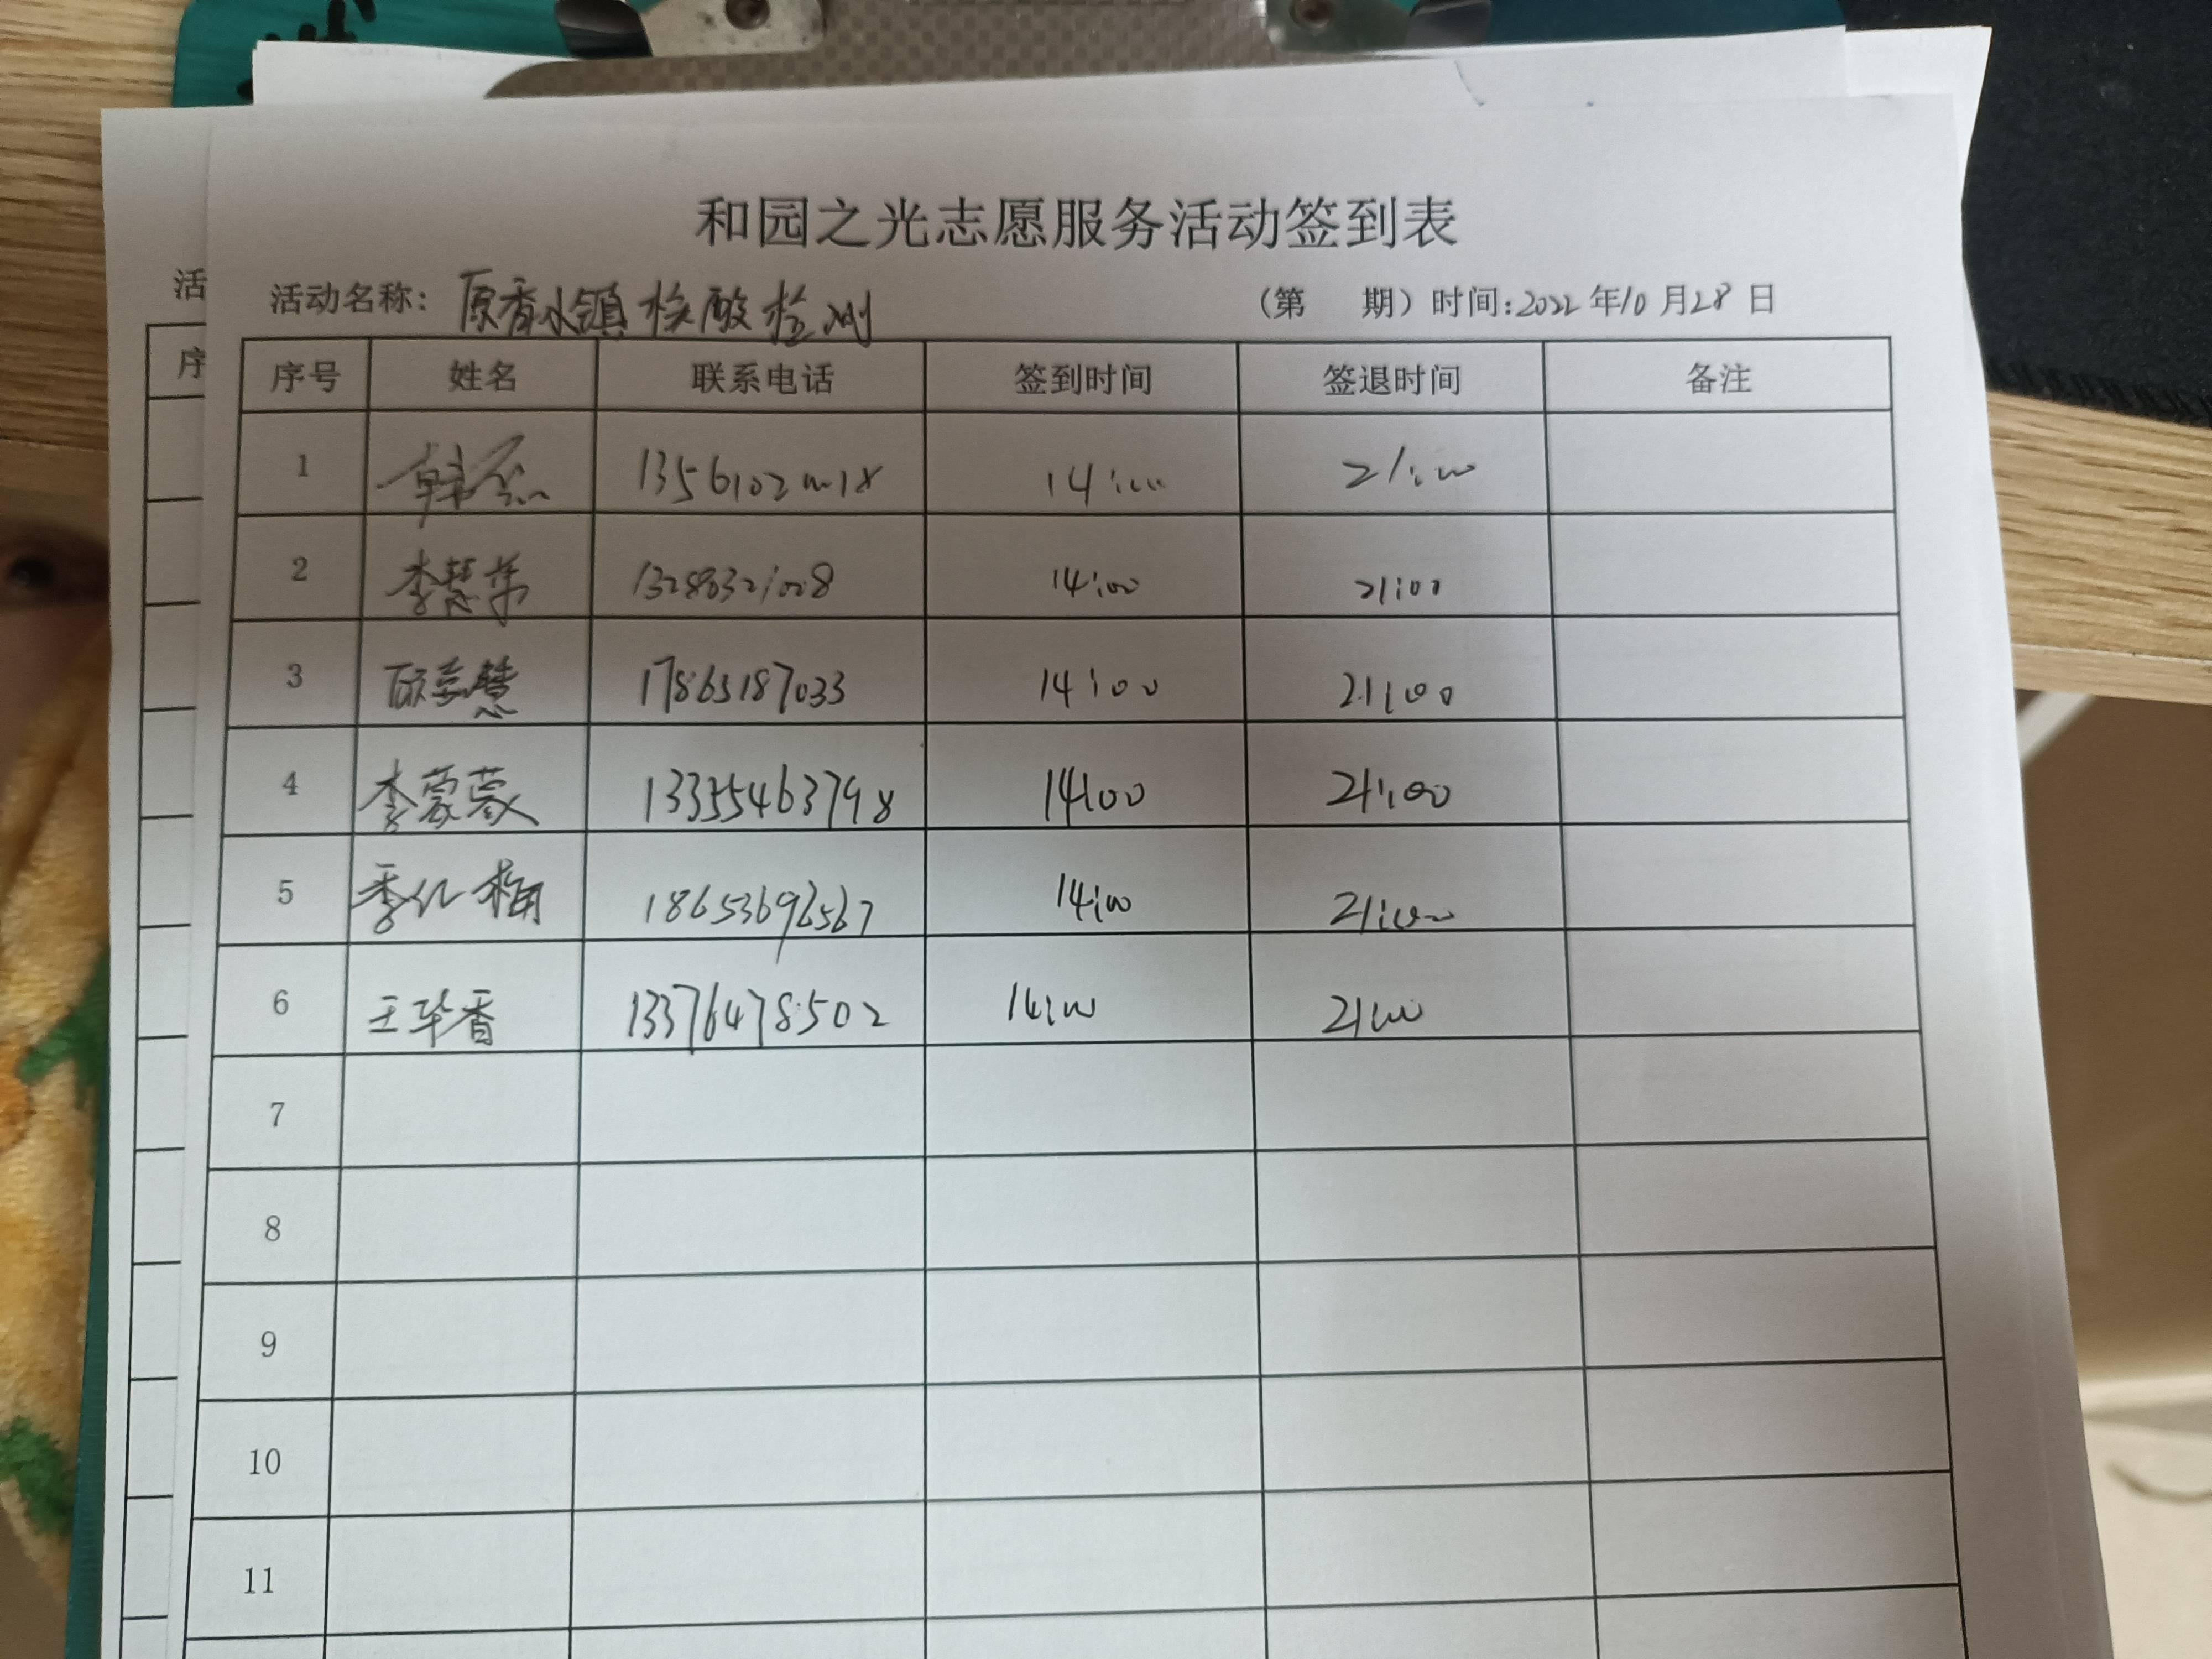 和园之光志愿服务活动签到表
活动名称：原香水镇核酸检测 （第 期）时间:2022年10月28日
序号 姓名 联系电话 签到时间 签退时间 备注
1 韩 14:00 21:00
2 李慧 14:00 21:00
3 17865187033 14:00 21:00
4 李蒙蒙 13355463798 14:00 21:00
5 季 梅 18653696567 14:00 21:00
6 王华香 13376478502 14:00 21:00
7
8
9
10
11
活
序